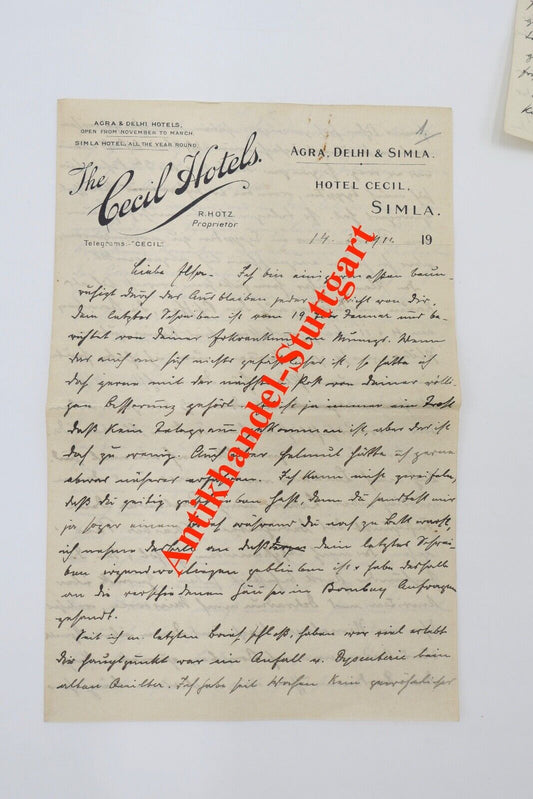 AGRA & DELHI HOTELS,
OPEN FROM NOVEMBER TO MARCH.
SIMLA HOTEL, ALL THE YEAR ROUND.
The Cecil Hotels.
R. HOTZ.
Proprietor
Telegrams: "CECIL".
A.
AGRA, DELHI & SIMLA.
HOTEL CECIL,
SIMLA.
14. 19
Liebe Ilse. Ich bin einigermassen beun-
ruhigt durch das Ausbleiben jeder Nachricht von Dir.
Dein letztes Schreiben ist vom 19. Januar und be-
richtet von Deiner Erkrankung an Mumps. Wenn
das auch an sich nichts gefährliches ist, so hätte ich
doch gerne mit der nächsten Post von Deiner völli-
gen Besserung gehört. ist ja immer ein Trost
daß kein Telegramm gekommen ist, aber das ist
doch zu wenig. Auch über Helmut hätte ich gerne
etwas näheres erfahren. Ich kann nicht zweifeln,
daß Du zeitig geschrieben hast, denn Du sandtest mir
ja sogar einen während Du noch zu Bett warst,
ich nehme deshalb an daß dein letztes Schrei-
ben irgendwo liegen geblieben ist & habe deshalb
an die verschiedenen Häuser in Bombay Anfragen
gesandt.
Seit ich m. letzten Brief schloß, haben wir viel erlebt
Die Hauptpunkt war ein Anfall v. Dysenterie beim
alten Ich habe seit Wochen kein
Antikhandel-Stuttgart